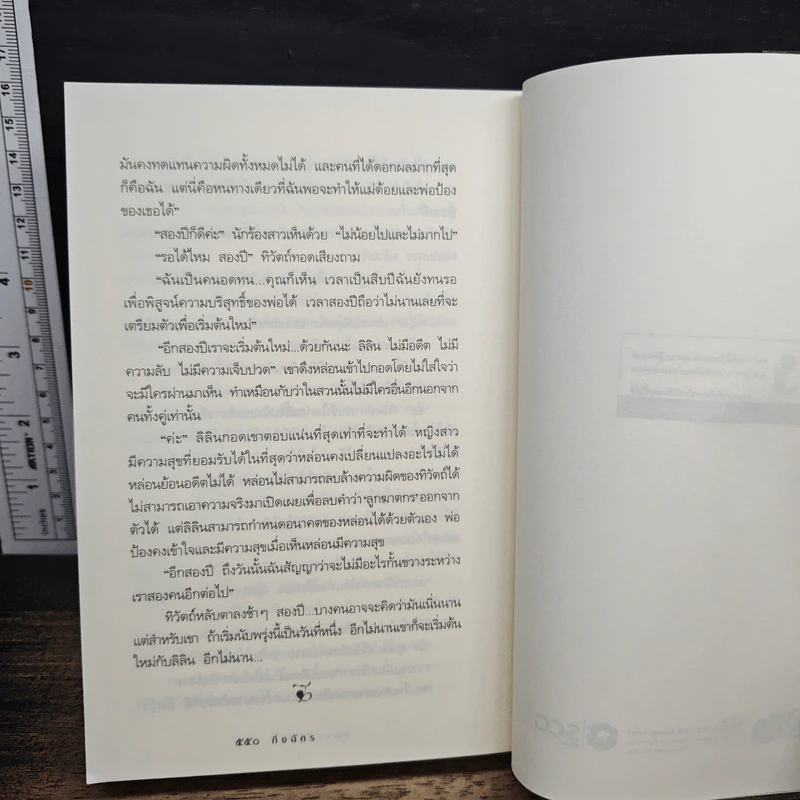 มันคงทดแทนความผิดทั้งหมดไม่ได้ และคนที่ได้ดอกผลมากที่สุด
ก็คือฉัน แต่นี่คือหนทางเดียวที่ฉันพอจะทำให้แม่ต้อยและพ่อป้อง
ของเธอได้”
“สองปีก็ดีค่ะ” นักร้องสาวเห็นด้วย “ไม่น้อยไปและไม่มากไป”
“รอได้ไหม สองปี” ทิวัตถ์ทอดเสียงถาม
“ฉันเป็นคนอดทน...คุณก็เห็น เวลาเป็นสิบปีฉันยังทนรอ
เพื่อพิสูจน์ความบริสุทธิ์ของพ่อได้ เวลาสองปีถือว่าไม่นานเลยที่จะ
เตรียมตัวเพื่อเริ่มต้นใหม่”
“อีกสองปีเราจะเริ่มต้นใหม่...ด้วยกันนะ ลิลิน ไม่มีอดีต ไม่มี
ความลับ ไม่มีความเจ็บปวด” เขาดึงหล่อนเข้าไปกอดโดยไม่ใส่ใจว่า
จะมีใครผ่านมาเห็น ทำเหมือนกับว่าในสวนนั้นไม่มีใครอื่นอีกนอกจาก
คนทั้งคู่เท่านั้น
“ค่ะ” ลิลินกอดเขาตอบแน่นที่สุดเท่าที่จะทำได้ หญิงสาว
มีความสุขที่ยอมรับได้ในที่สุดว่าหล่อนคงเปลี่ยนแปลงอะไรไม่ได้
หล่อนย้อนอดีตไม่ได้ หล่อนไม่สามารถลบล้างความผิดของทิวัตถ์ได้
ไม่สามารถเอาความจริงมาเปิดเผยเพื่อลบคำว่า‘ลูกฆาตกร’ออกจาก
ตัวได้ แต่ลิลินสามารถกำหนดอนาคตของหล่อนได้ด้วยตัวเอง พ่อ
ป้องคงเข้าใจและมีความสุขเมื่อเห็นหล่อนมีความสุข
“อีกสองปี ถึงวันนั้นฉันสัญญาว่าจะไม่มีอะไรกั้นขวางระหว่าง
เราสองคนอีกต่อไป”
ทิวัตถ์หลับตาลงช้าๆ สองปี...บางคนอาจจะคิดว่ามันเนิ่นนาน
แต่สำหรับเขา ถ้าเริ่มนับพรุ่งนี้เป็นวันที่หนึ่ง อีกไม่นานเขาก็จะเริ่มต้น
ใหม่กับลิลิน อีกไม่นาน...
๕๕๐ กิ่งฉัตร